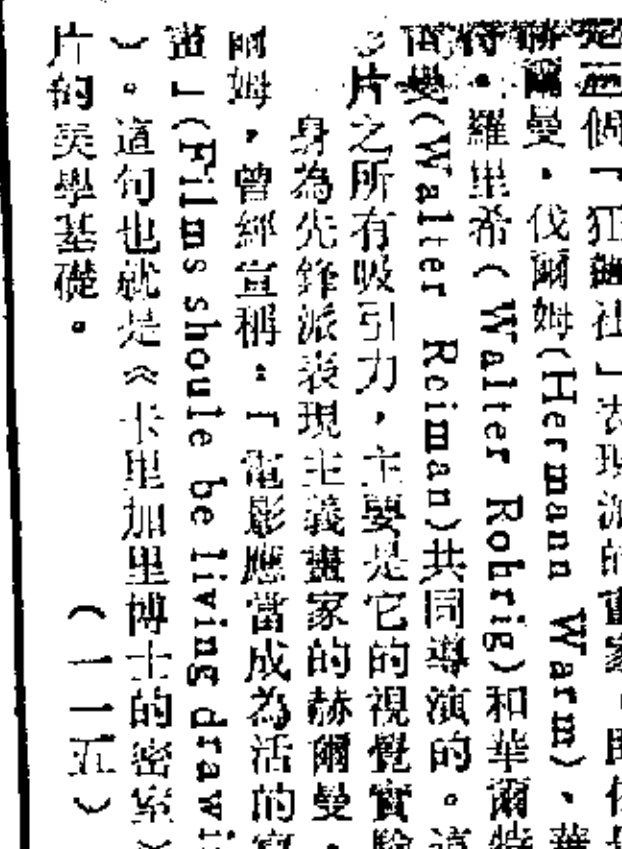 這個「狂飆社」表現派的畫家，即
赫爾曼．伐爾姆(Hermann Warm)、華
特．羅里希（Walter Rohrig)和華爾特
雷曼(Walter Reiman)共同導演的。這
片之所有吸引力，主要是它的視覺實驗
身為先鋒派表現主義畫家的赫爾曼．
爾姆，曾經宣稱：「電影應當成為活的
畫」(Films shoule be living drawi
）。這句也就是《卡里加里博士的密室》
片的美學基礎。
（一一五）